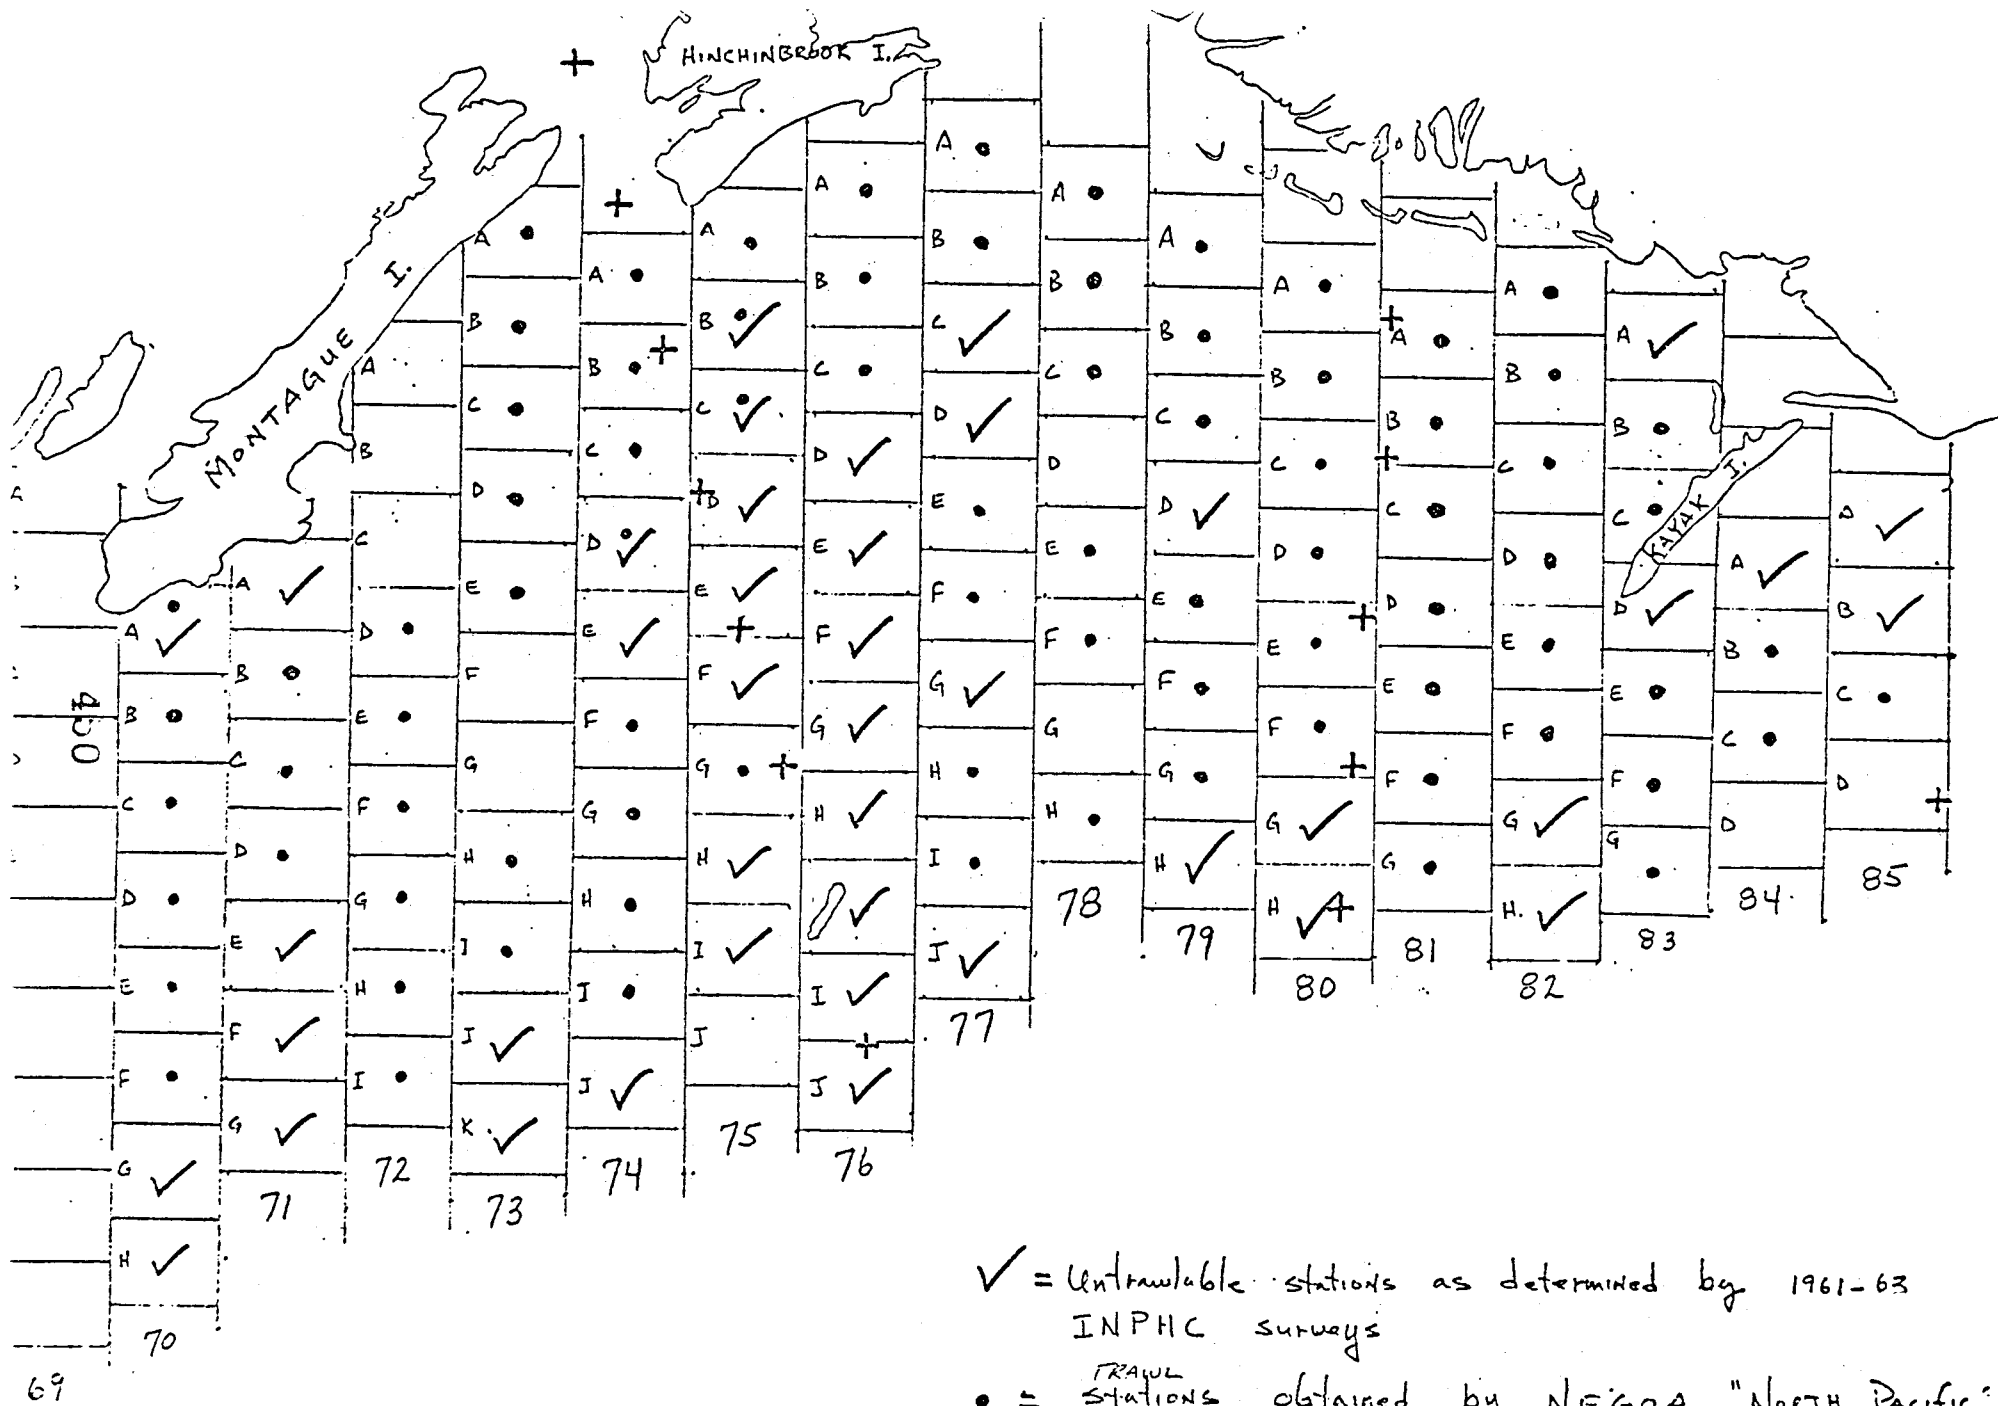 HINCHINBROOK I.
MONTAGUE I.
KAYAK I.
450
A
A B C D E F G H
70
A B C D E F G
71
A B C D E F G H I
72
A B C D E F G H I J K
73
A B C D E F G H I J
74
A B C D E F G H I J
75
A B C D E F G H I J
76
A B C D E F G H I J
77
A B C D E F G H
78
A B C D E F G H
79
A B C D E F G H
80
A B C D E F G
81
A B C D E F G H.
82
A B C D E F G
83
A B C D
84.
A B C D
85
69
✓ = Untrawlable stations as determined by 1961-63
INPHC surveys
TRAWL
• = stations obtained by NEGOA "North Pacific"